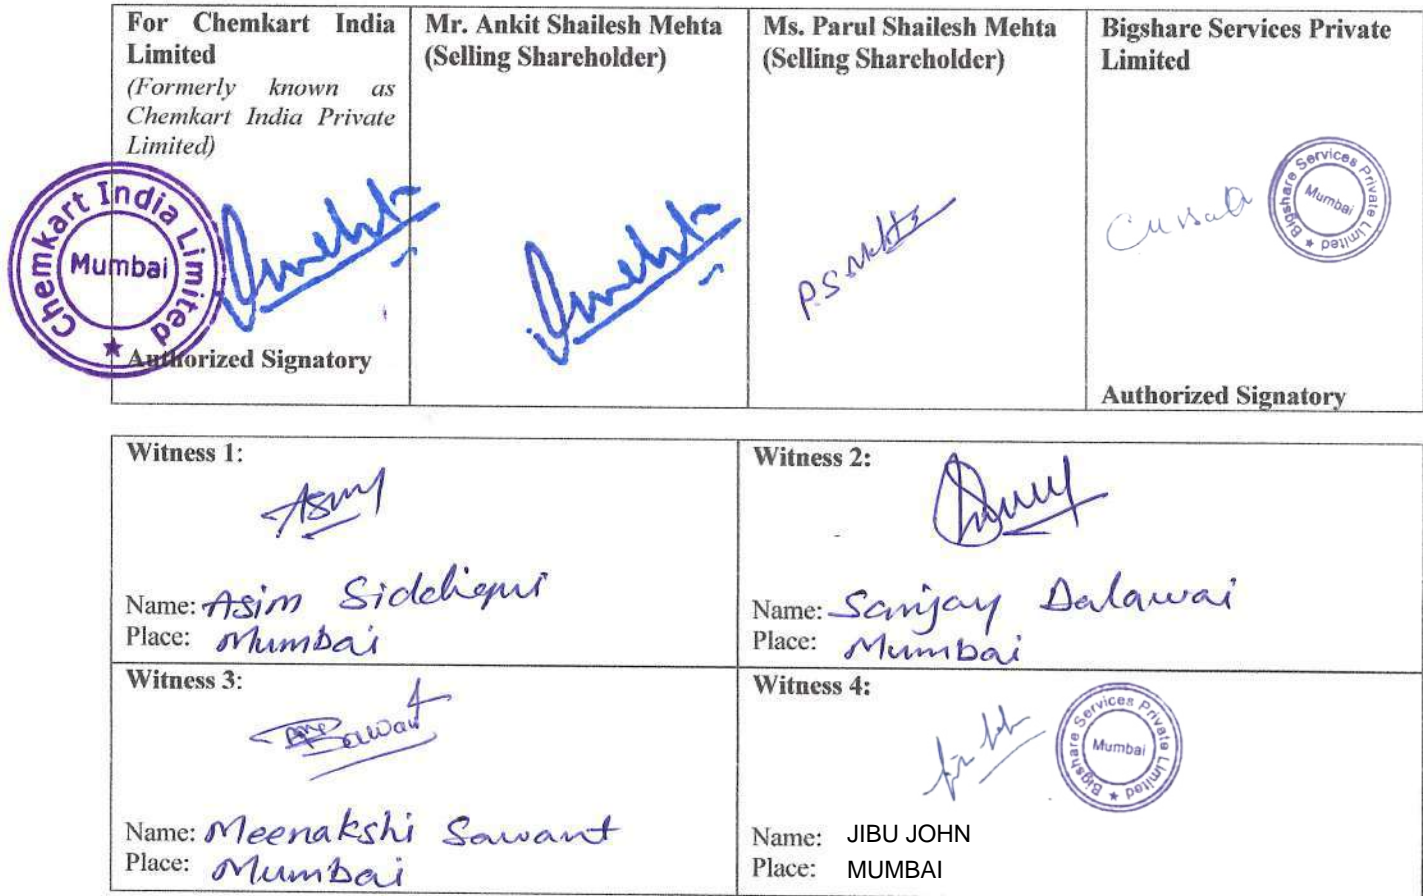 For Chemkart India
Limited
(Formerly known as
Chemkart India Private
Limited)
Chemkart India Limited
Mumbai
Authorized Signatory
Mr. Ankit Shailesh Mehta
(Selling Shareholder)
Ms. Parul Shailesh Mehta
(Selling Shareholder)
P.S. Mehta
Bigshare Services Private
Limited
Bigshare Services Private Limited
Mumbai
Authorized Signatory
Witness 1:
Name: Asim Siddiqui
Place: Mumbai
Witness 2:
Name: Sanjay Dalawai
Place: Mumbai
Witness 3:
Sawant
Name: Meenakshi Sawant
Place: Mumbai
Witness 4:
Bigshare Services Private Limited
Mumbai
Name: JIBU JOHN
Place: MUMBAI